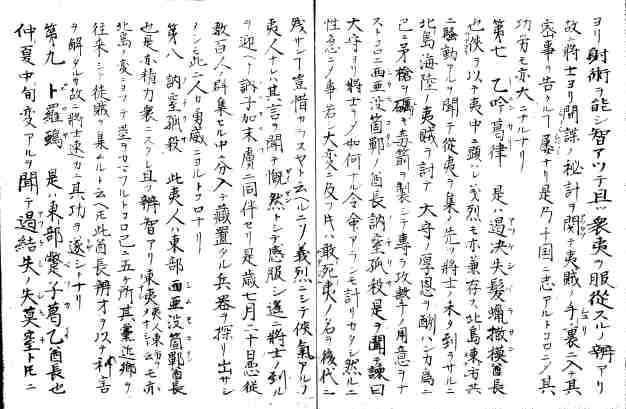 ヨリ射術ヲ能シ智アツテ且ツ衆夷ヲ服従スルノ辨アリ
故ニ将士ヨリ間諜ノ秘計ヲ聞テ夷賊ノ手裏ニ入テ其
密事ヲ告クルコト屡ナリ是乃チ国ニ志アルトコロニノ其
功労モ亦大ニナルナリ
第七 乙吟葛律 是ハ過決失髪蠟撒摸酋長
也淡ヲ以テ夷中ニ顕レシ義烈モ亦兼存ス北島東方共
ニ騒動アルヲ聞テ従夷ヲ集メ先ツ将士ノ未タ到ラサルニ
北島海陸ノ夷賊ヲ討テ 大守ノ厚恩ニ酬ハンカ為ニ
已ニ矛槍ヲ礪キ毒箭ヲ製シテ専ラ攻戦ノ用意ヲナ
ストコロニ面亜没箇鄿ノ酋長訥窒孤殺是ヲ聞テ諌曰
大守ヨリ将士ヲノ如何ナル令命アランモ計リカタシ然ルニ
性急ニノ事若シ大変ニ及フトキハ敢死夷ノ名ヲ後代ニ
残サンコト豈惜カラスヤト云ヘルニソノ義烈ニシテ侠気アルノ
夷人ナレハ其言ヲ聞テ慨然トシテ感服シ遥ニ将士ノ到ル
ヲ迎ヘテ訥子加末膚ニ同伴セリ是歳七月二十日悪従
数百人ノ群集セル中ニ分入テ蔵置タル兵器ヲ探リ出サシ
ムコト此二人カ勇威ニヨルトコロナリ
第八 訥窒孤殺 此夷人ハ東部面亜没箇鄿酋長
也是亦精力衆ニスクレ且ツ辨智アリ東夷モ亦
北島ノ変ニヨツテ道ヲカマフルトコロ已ニ五ケ所其党近郷ヲ
往来シテ徒賊ヲ集ムルト云ヘトモ此酋長辨才ヲ以テ利害
ヲ解タルカ故ニ将士速カニ其功ヲ遂シナリ
第九 卜羅鵶 是ハ東部蹩子葛乙酋長也
仲夏中旬変アルヲ聞テ過結失失莫窒トトモニ